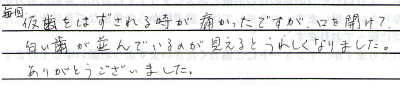 毎回、仮歯をはずされる時が痛かったですが、口を開けて、
白い歯が並んでいるのが見えるとうれしくなりました。
ありがとうございました。